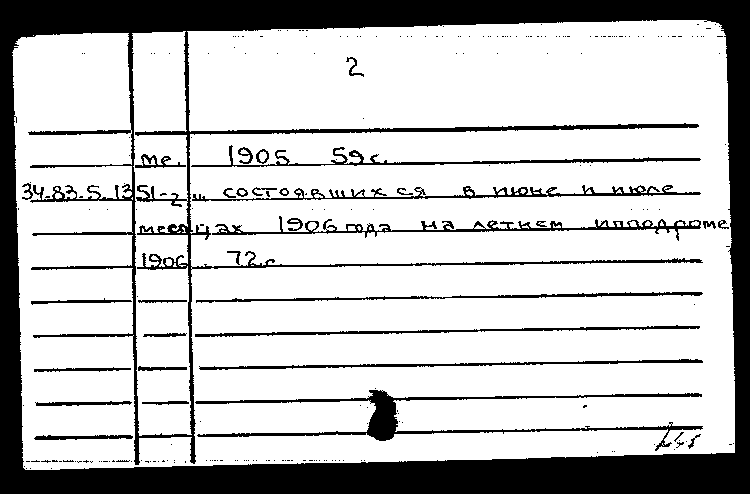 2
ме. 1905. 59с.
34.83.5.1351-2 ... состоявшихся в июне и июле
месяцах 1906 года на летнем ипподроме
1906. 72с.